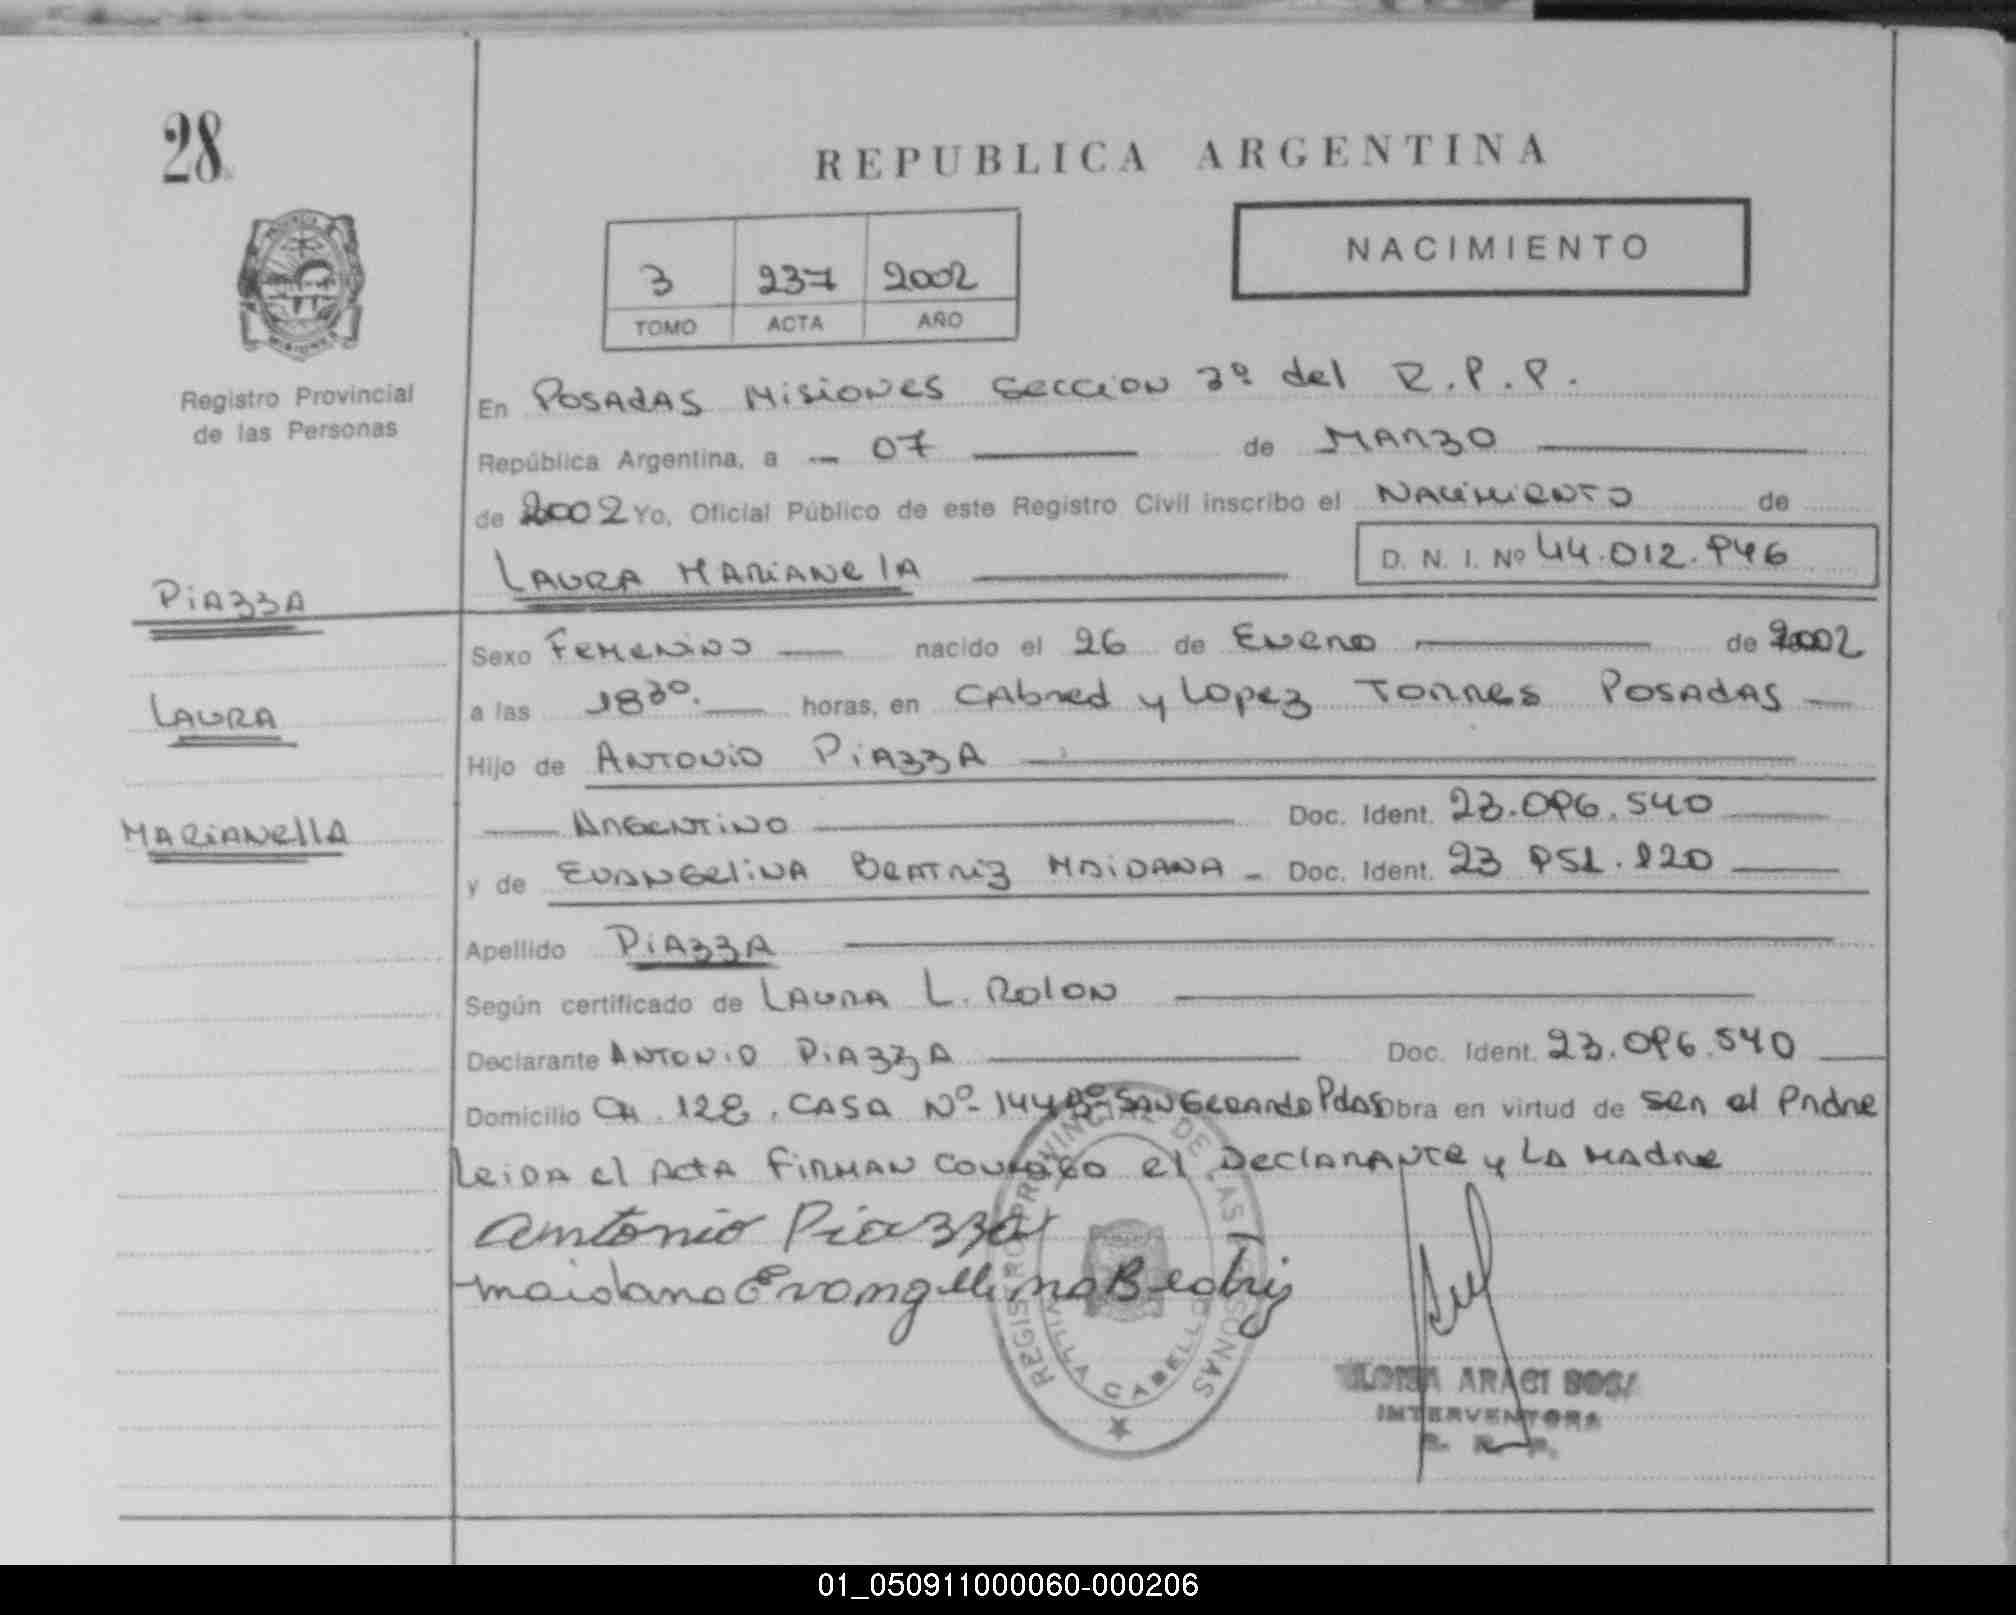 28
REPUBLICA ARGENTINA
NACIMIENTO
3 237 2002
TOMO ACTA AÑO
MISIONES
Registro Provincial
de las Personas
En POSADAS MISIONES SECCION 3º del R.P.P.
República Argentina, a 07 de MARZO
de 2002 Yo, Oficial Público de este Registro Civil inscribo el NACIMIENTO de
LAURA MARIANELA D. N. I. Nº 44.012.946
PIAZZA
Sexo FEMENINO nacido el 26 de ENERO de 2002
LAURA
a las 18³⁰. horas, en CABRED y LOPEZ TORRES POSADAS
Hijo de ANTONIO PIAZZA
MARIANELLA
ARGENTINO Doc. Ident. 23.096.540
y de EVANGELINA BEATRIZ MAIDANA - Doc. Ident. 23 951.120
Apellido PIAZZA
Según certificado de LAURA L. ROLON
Declarante ANTONIO PIAZZA Doc. Ident. 23.096.540
Domicilio CH. 128. CASA Nº 144 Bº SAN GERARDO Pdas Obra en virtud de ser el Padre
LEIDA el ACTA FIRMAN CONMIGO el DECLARANTE y LA MADRE
Antonio Piazza
Maidana Evangelina Beatriz
REGISTRO PROVINCIAL DE LAS PERSONAS
VILLA CABELLO
ARACI
INTERVENTORA
01_050911000060-000206